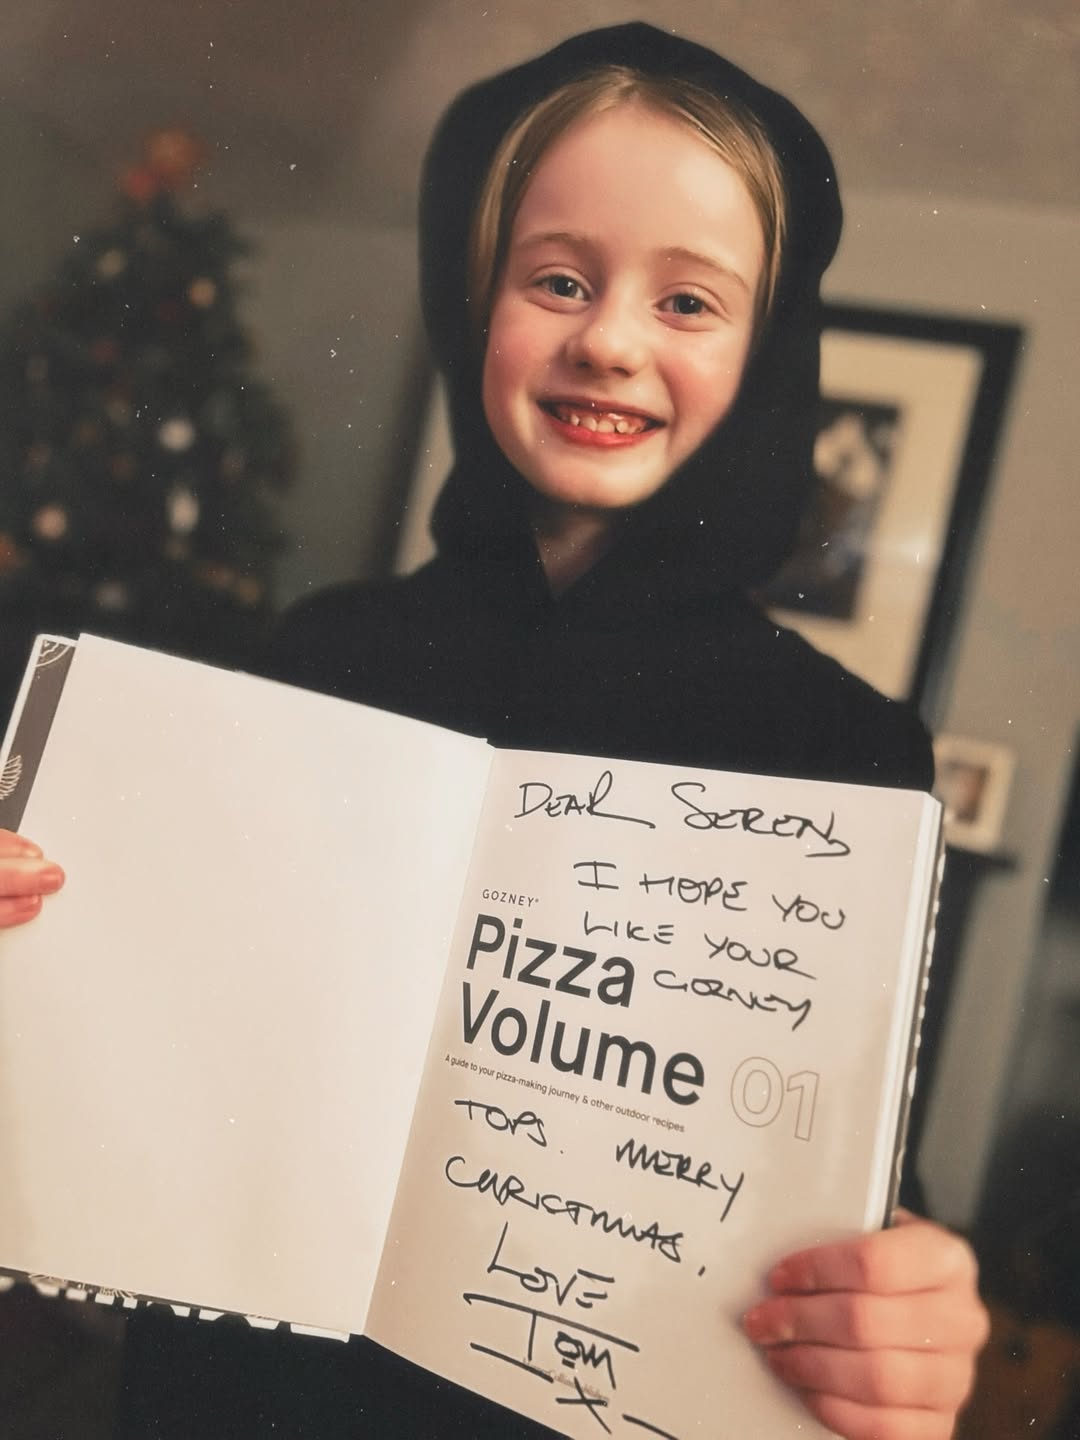 DEAR SEREN,
I HOPE YOU
LIKE YOUR
GOZNEY
GOZNEY®
Pizza
Volume 01
A guide to your pizza-making journey & other outdoor recipes
TOPS. MERRY
CHRISTMAS,
LOVE
TOM
X